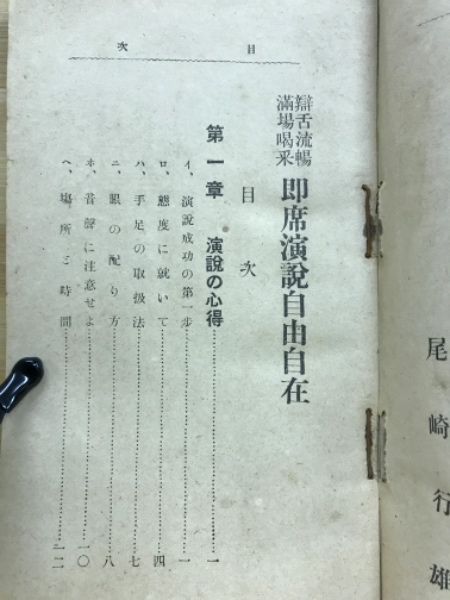 尾崎行雄
目次
辯舌流暢
滿場喝采
即席演說自由自在
目次
第一章 演說の心得……一
イ、演說成功の第一步……一
ロ、態度に就いて……四
ハ、手足の取扱法……七
ニ、眼の配り方……八
ホ、音聲に注意せよ……一〇
ヘ、場所と時間……一二